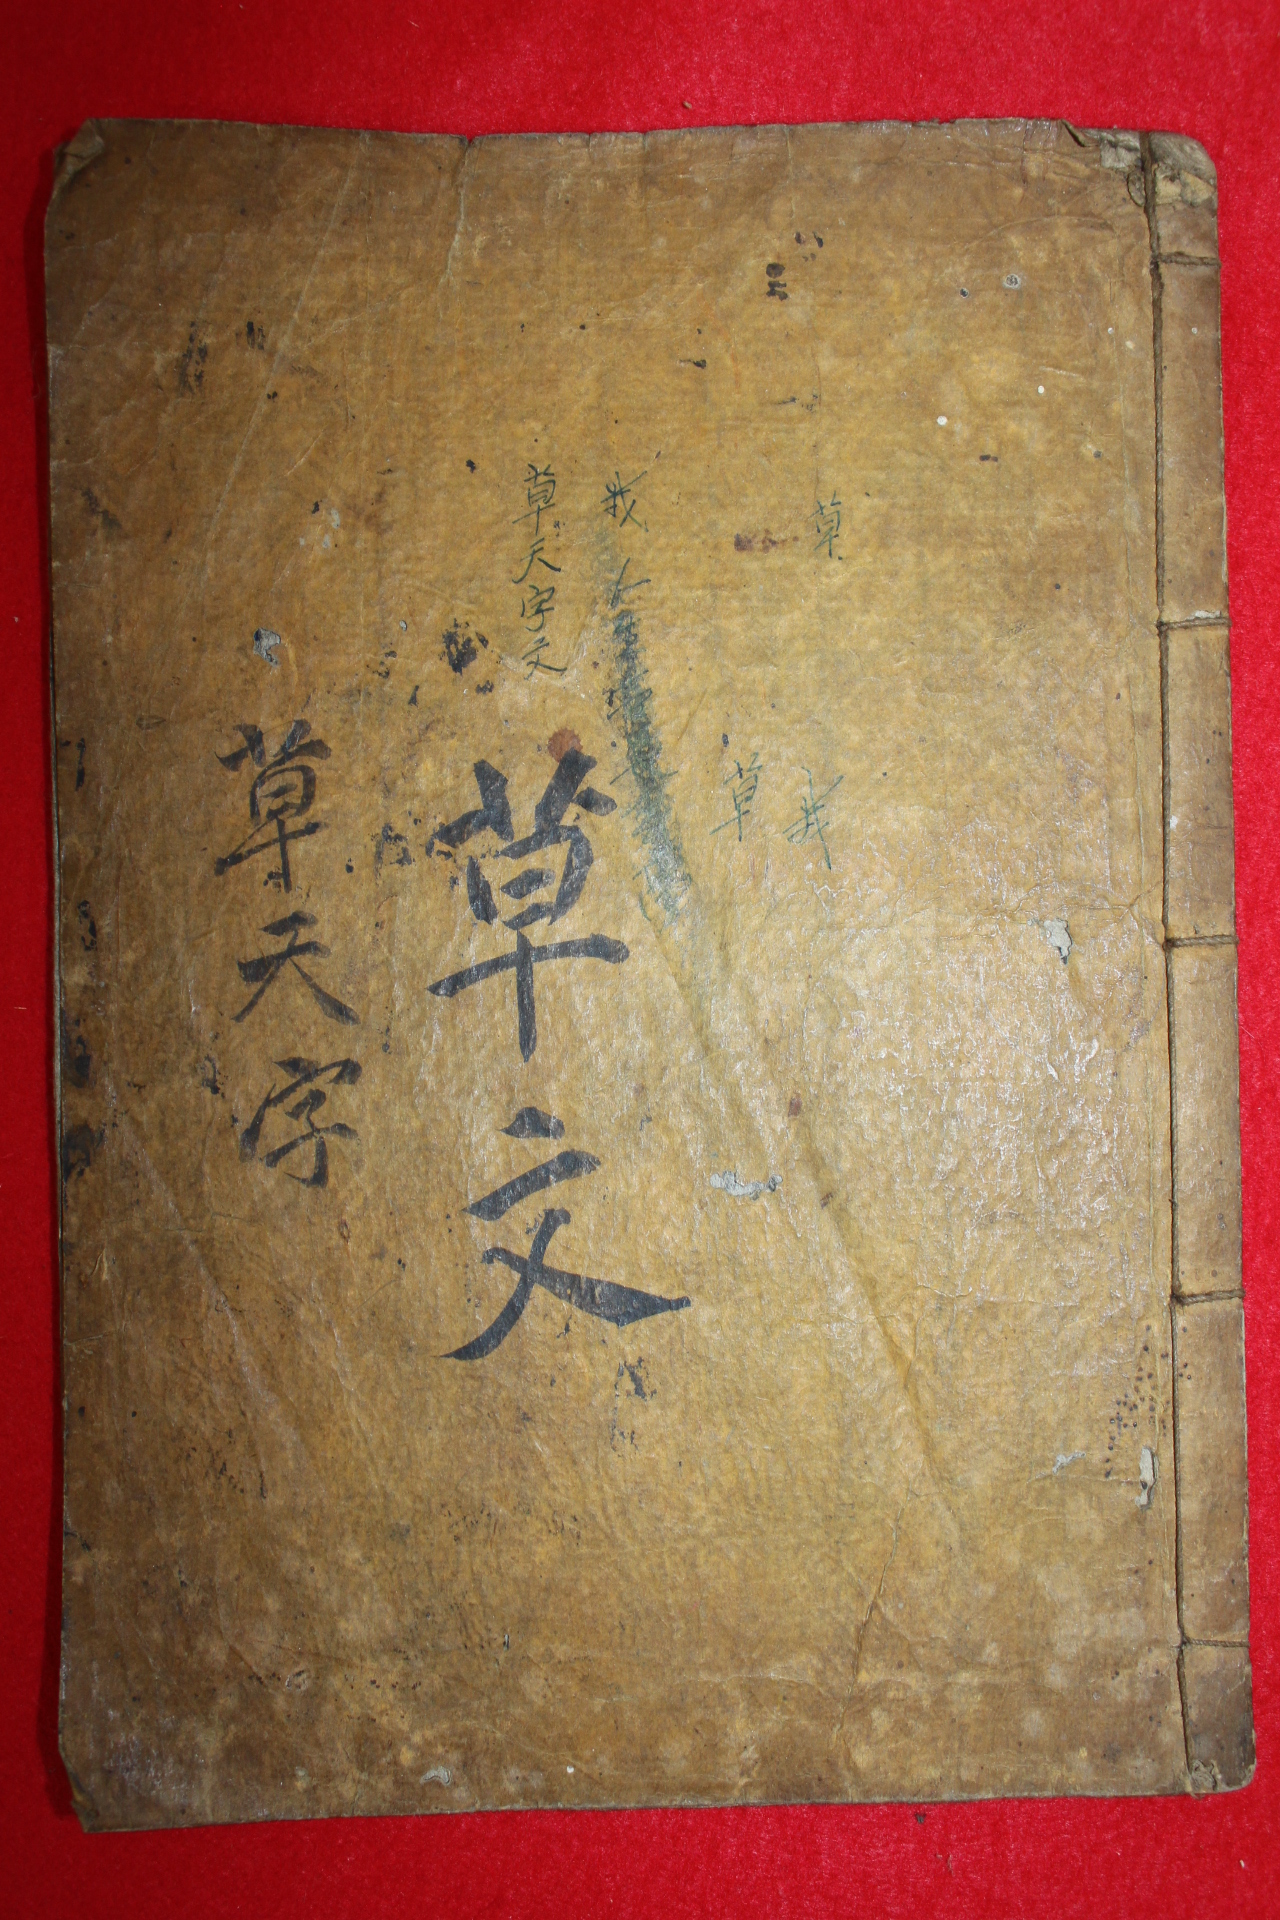 草
我
草
我
草天字文
草文
草天字